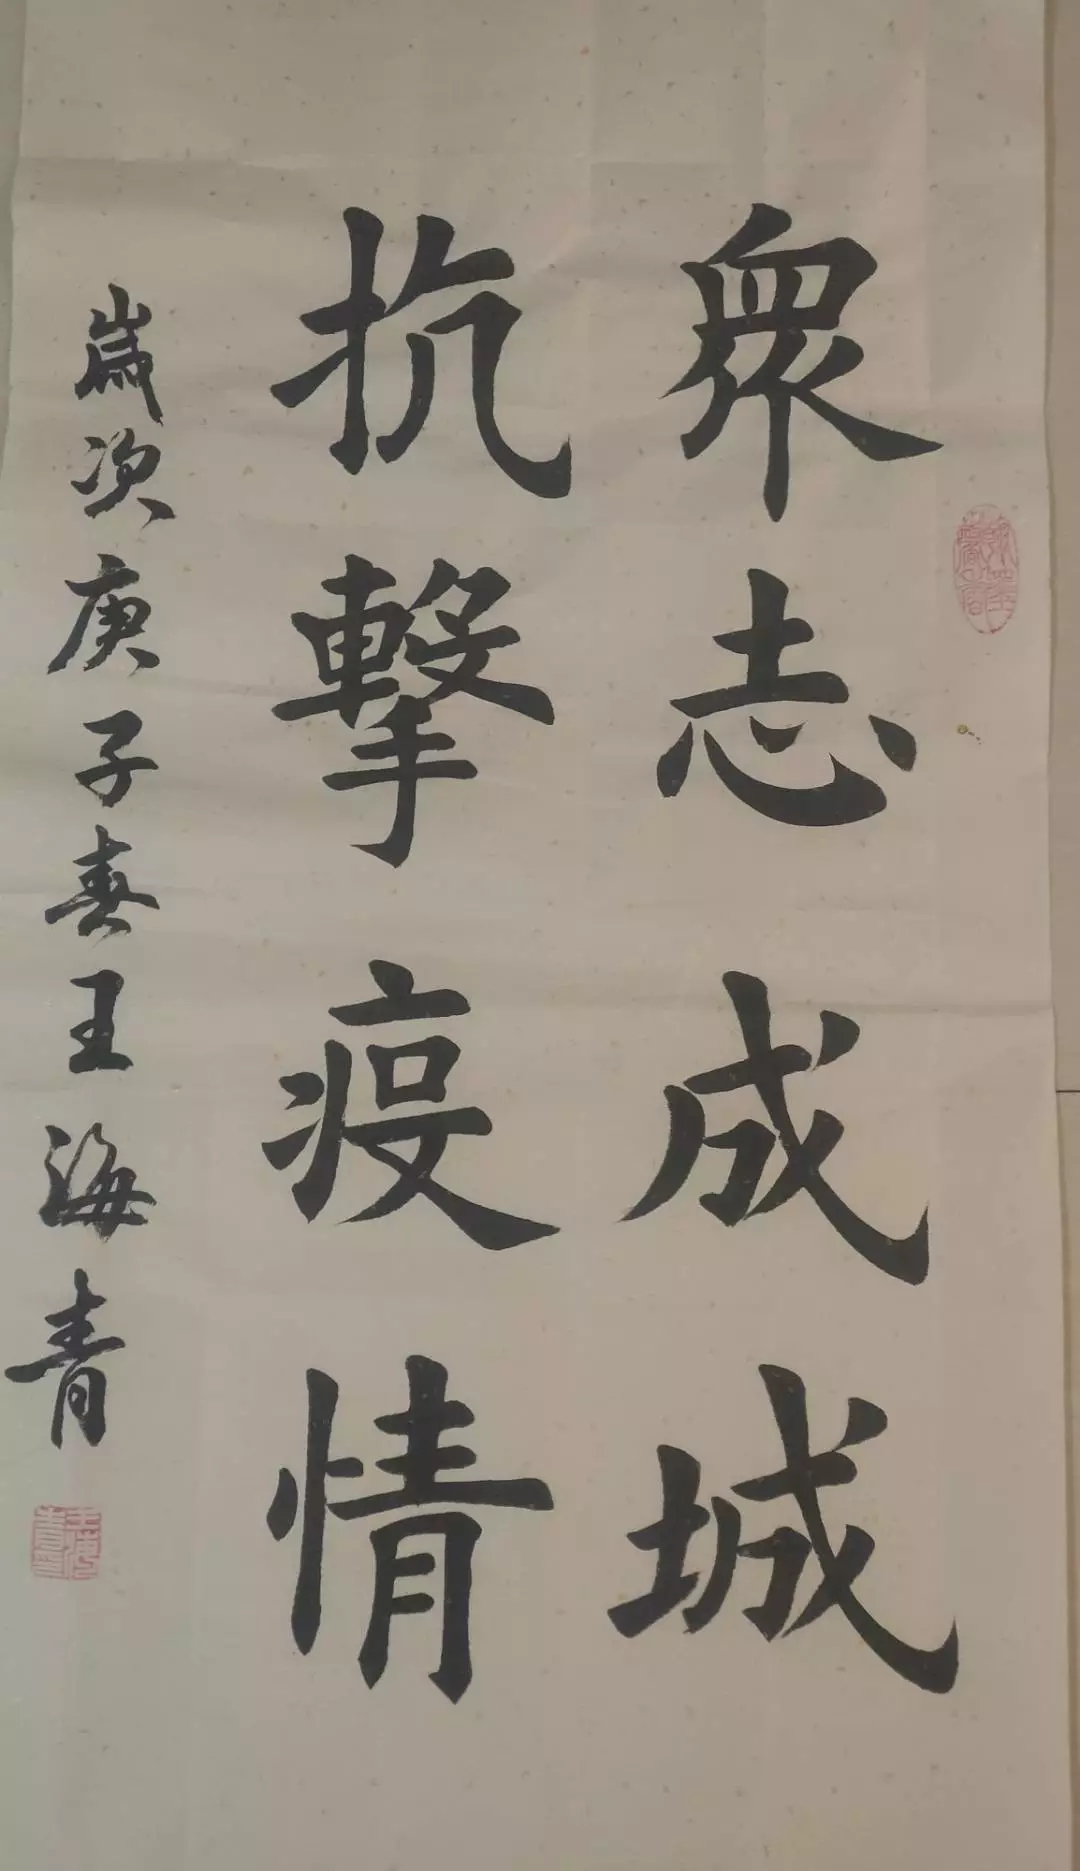 眾志成城
抗擊疫情
歲次庚子春王海青